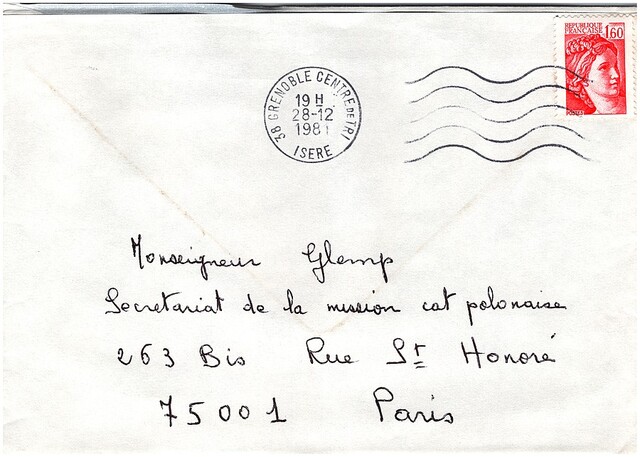 REPUBLIQUE
FRANCAISE 1,60
POSTES
38 GRENOBLE CENTRE DE TRI
19 H
28-12
1981
ISERE
Monseigneur Glemp
Secretariat de la mission cat polonaise
263 Bis Rue St Honoré
75001 Paris